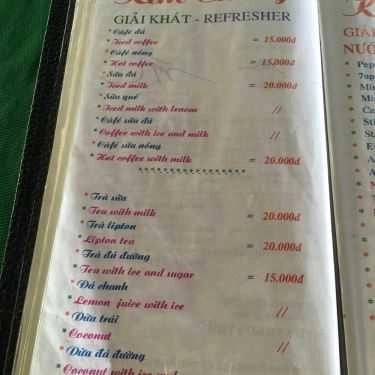 GIẢI KHÁT - REFRESHER
* Café đá
* Iced coffee = 15.000đ
* Café nóng
* Hot coffee = 15,000đ
* Sữa đá
* Iced milk = 20.000đ
* Sữa quế
* Iced milk with lemon //
* Café sữa đá
* Coffee with ice and milk //
* Café sữa nóng
* Hot coffee with milk = 20.000đ
* Trà sữa
* Tea with milk = 20.000đ
* Trà lipton
* Lipton tea = 20.000đ
* Trà đá đường
* Tea with ice and sugar = 15.000đ
* Đá chanh
* Lemon juice with ice //
* Dừa trái
* Coconut //
* Dừa đá đường
* Coconut with ice
GIẢ
NƯỚ
* Pep
* 7up